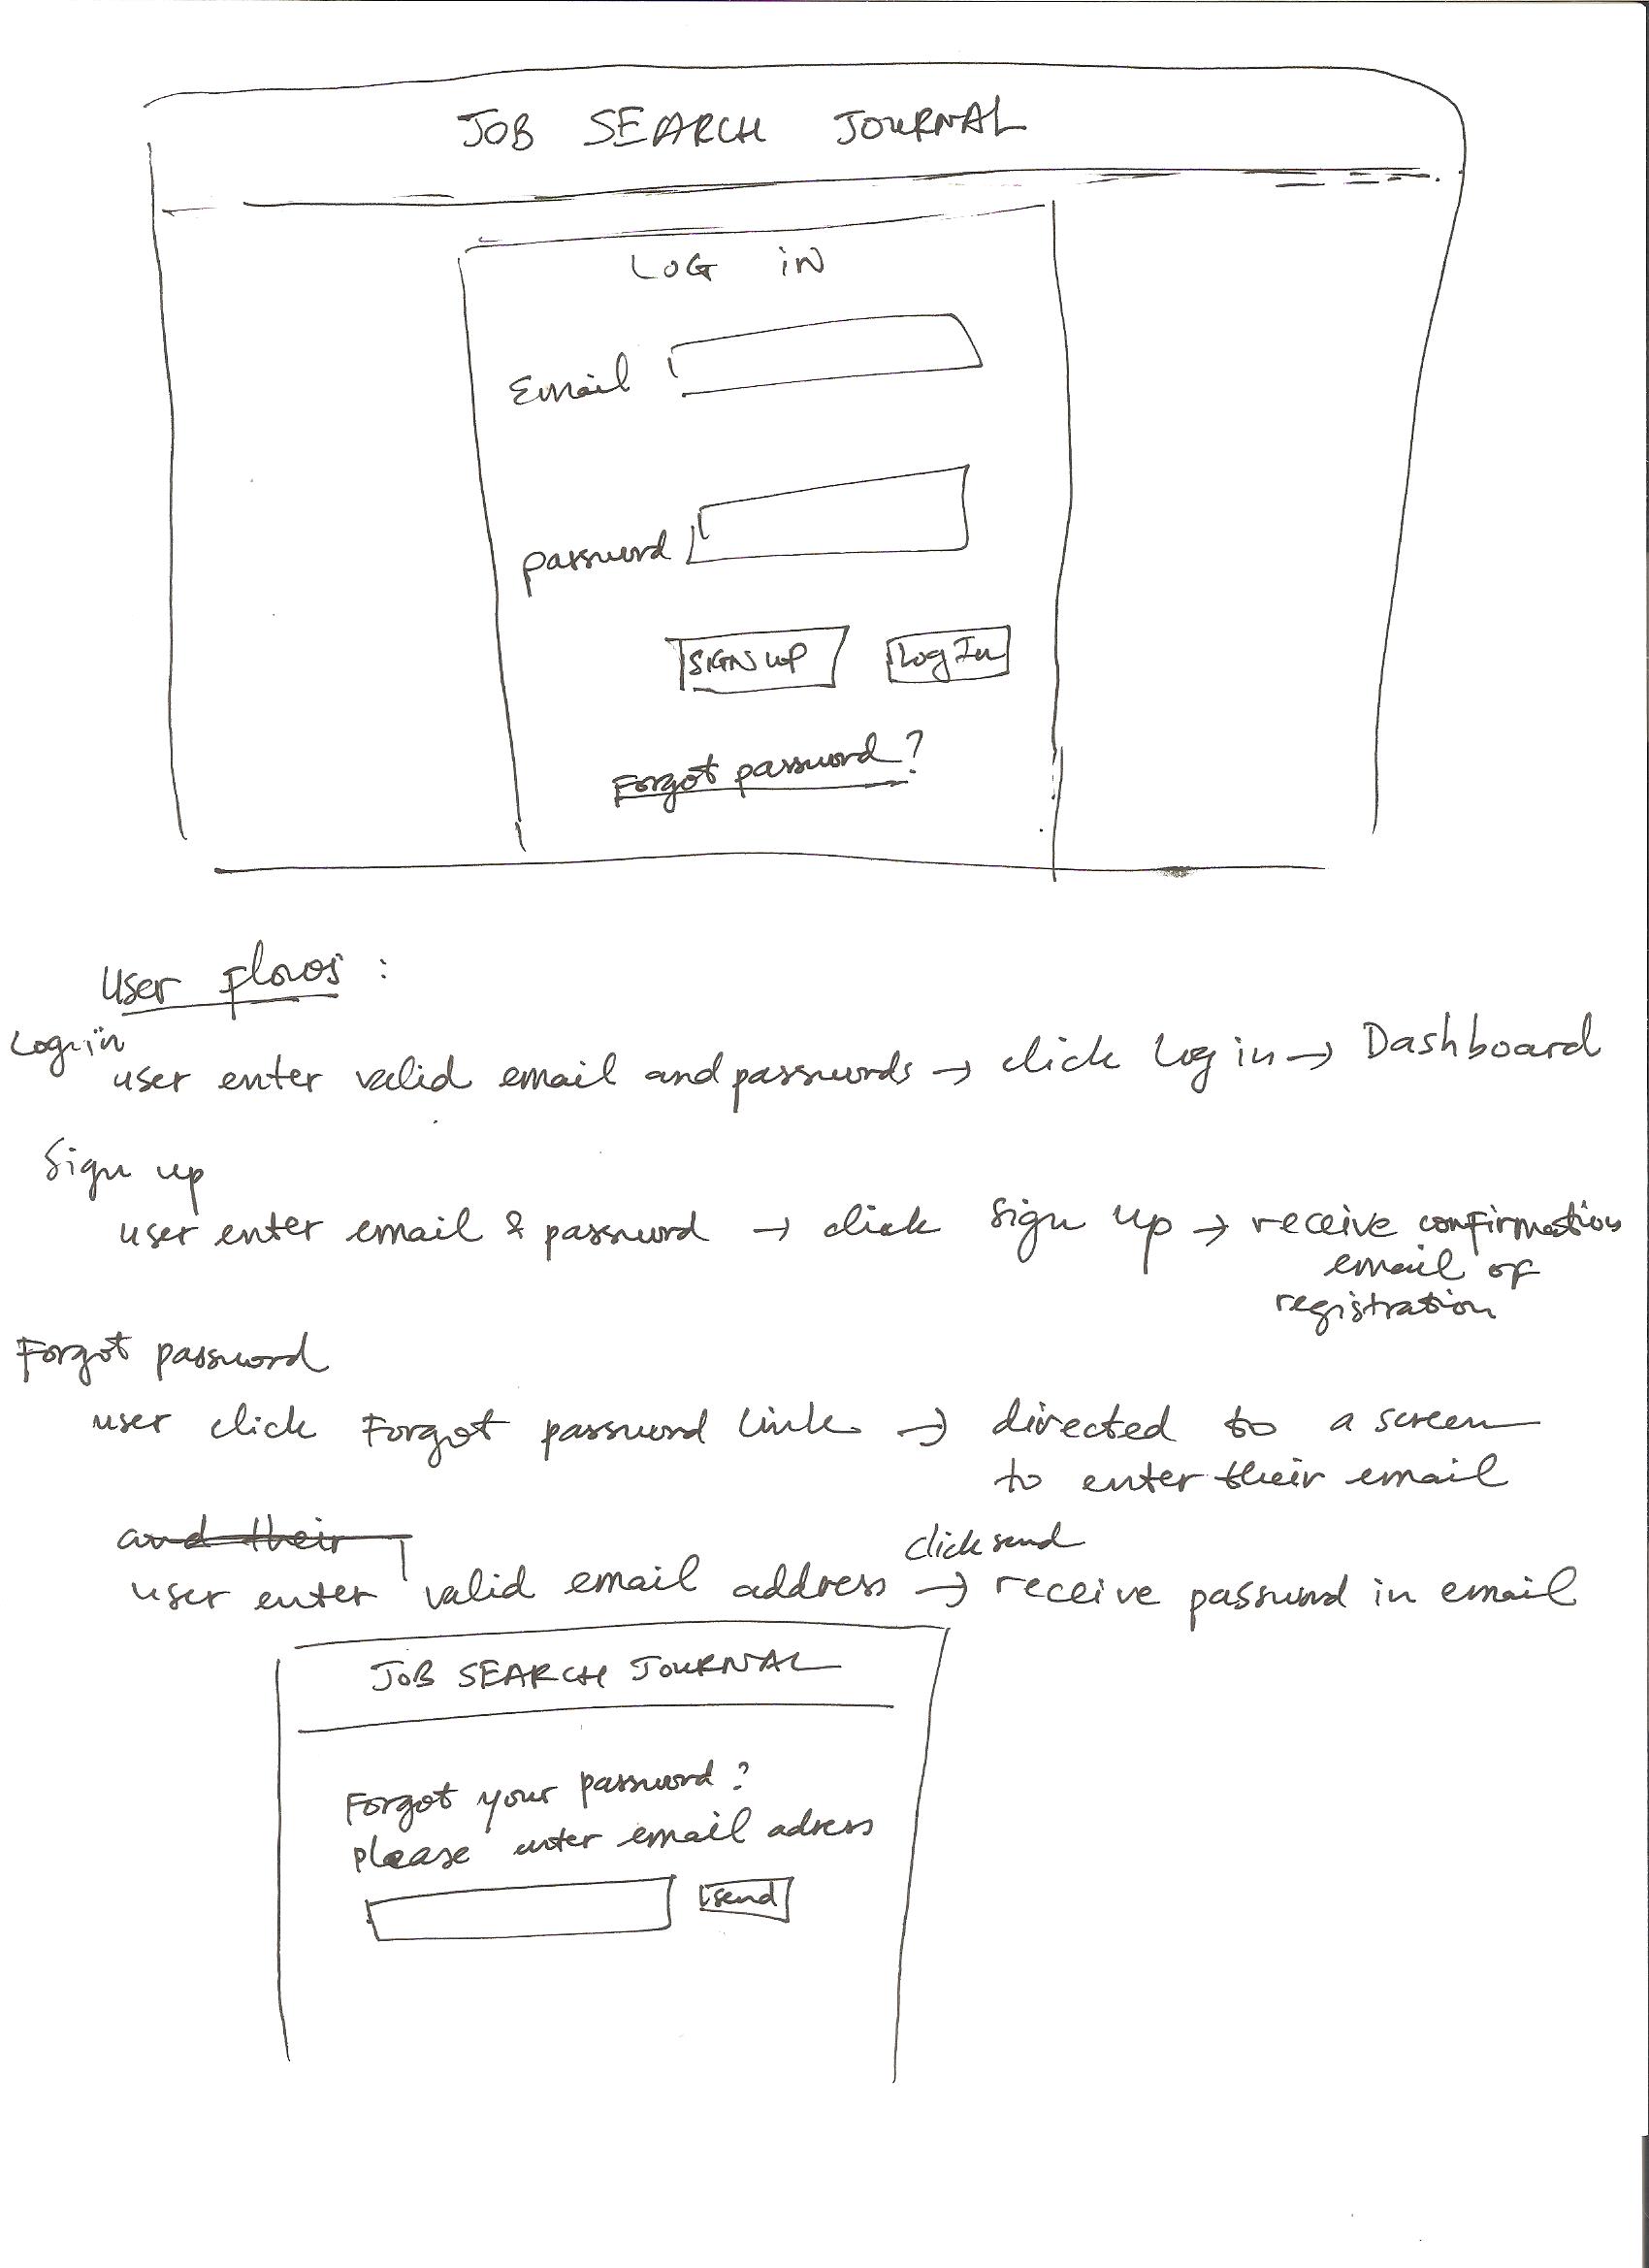 JOB SEARCH JOURNAL
LOG iN
Email
password
SIGN UP Log In
Forgot password?
User Flows:
Login
user enter valid email and passwords → click Log in → Dashboard
Sign up
user enter email & password → click Sign up → receive confirmation
email of
registration
Forgot password
user click Forgot password link → directed to a screen
to enter their email
and their
click send
user enter valid email address → receive password in email
JOB SEARCH JOURNAL
Forgot your password?
please enter email adress
send